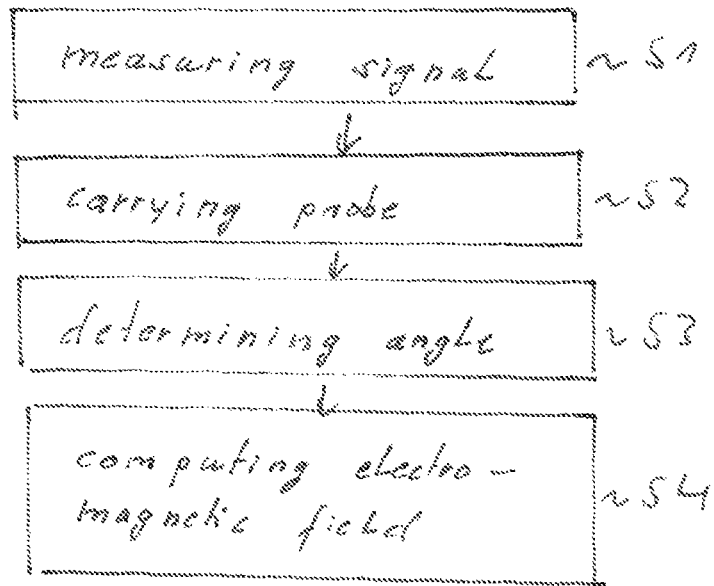 measuring signal ~ S1
carrying probe ~ S2
determining angle ~ S3
computing electro-
magnetic field ~ S4